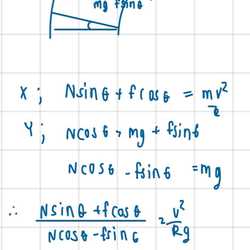 mg fsinθ
X ; Nsinθ + fcosθ = mv²/R
Y ; Ncosθ = mg + fsinθ
Ncosθ - fsinθ = mg
∴ Nsinθ + fcosθ / Ncosθ - fsinθ = v²/Rg